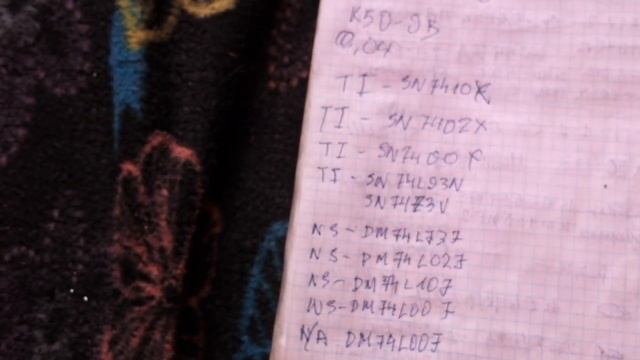 K50-9B
0,04
TI - SN7410X
TI - SN7402X
TI - SN7400X
TI - SN74L93N
SN7473N
NS - DM74L73J
NS - DM74L02J
NS - DM74L10J
NS - DM74L00J
N/A DM74L00J